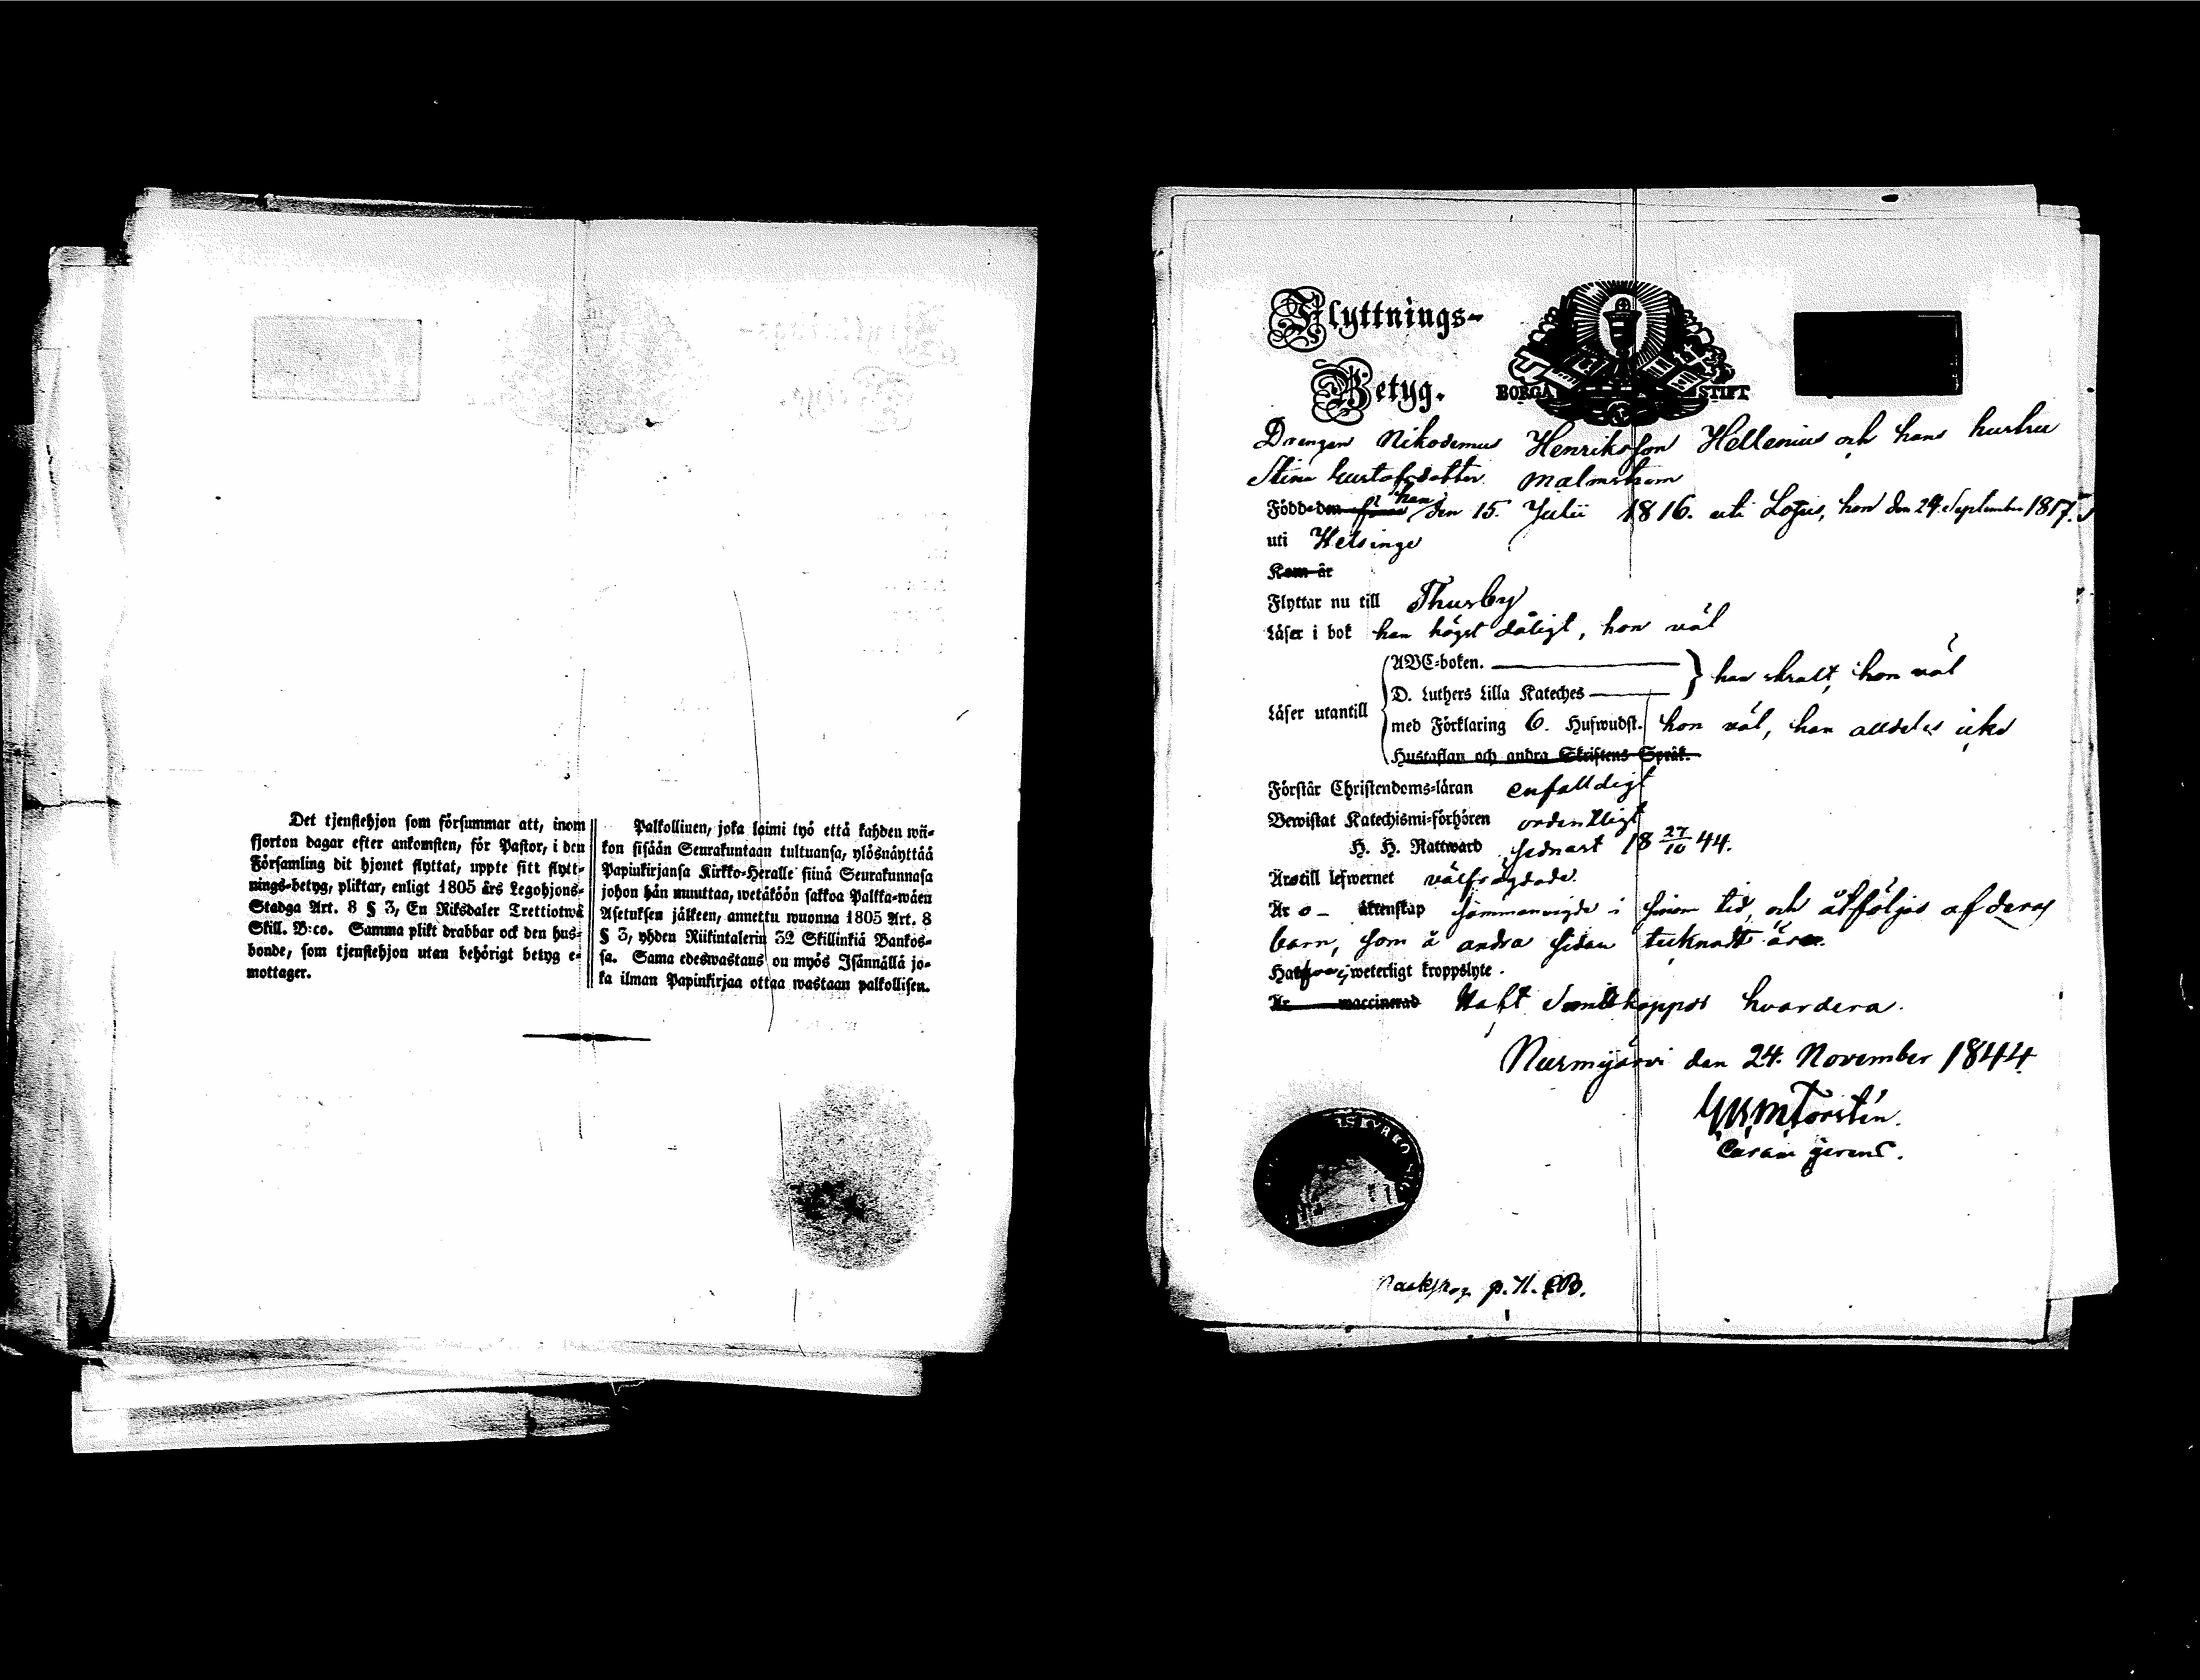 Det tjenstehjon som försummar att, inom
fjorton dagar efter ankomsten, för Pastor, i den
Församling dit hjonet flyttat, uppte sitt flytt-
nings-betyg, pliktar, enligt 1805 års Legohjons-
Stadga Art. 8 § 3, En Riksdaler Trettiotwå
Skill. B:co. Samma plikt drabbar ock den hus-
bonde, som tjenstehjon utan behörigt betyg e-
mottager.
Palkollinen, joka laimi lyö että kahden wii-
kon sisään Seurakuntaan tultuansa, ylösnäyttää
Papinkirjansa Kirkko-Herralle siinä Seurakunnasa
johon hän muuttaa, wetäköön sakkoa Palkka-wäen
Asetuksen jälkeen, annettu wuonna 1805 Art. 8
§ 3, yhden Riikintalerin 32 Skillinkiä Bankos-
sa. Sama edeswastaus on myös Isännällä jo-
ka ilman Papinkirjaa ottaa wastaan palkollisen.
Flyttnings-
Betyg.
BORGÅ STIFT
Drengen Nikodemus Henriksson Hellenius och hans hustru
Stina Gustafsdotter Malmstrom
Födde han den 15. Julii 1816. uti Lojus, hon den 24. September 1817.
uti Helsinge
Kom år
Flyttar nu till Thusby
Läser i bok han högst dåligt, hon väl
ABC-boken.
D. Luthers Lilla Kateches } han skralt, hon väl
Läser utantill
med Förklaring 6. Hufwudst. hon väl, han alldeles icke
Hustaflan och andra Skriftens Språk.
Förstår Christendoms-läran enfalldigt
Bewistat Katechismi-förhören ordentligt
H. H. Nattward sednast 18 27/10 44.
Äro till lefwernet välfrägdade.
Är o- äktenskap sammanvigde i sinom tid, och åtföljes af deras
barn, som å andra sidan tecknadt äro.
Hafva ej weterligt kroppslyte.
Är vaccinerad Haft Smittkoppor hvardera.
Nurmijärvi den 24. November 1844.
Torstén.
Curam gerens.